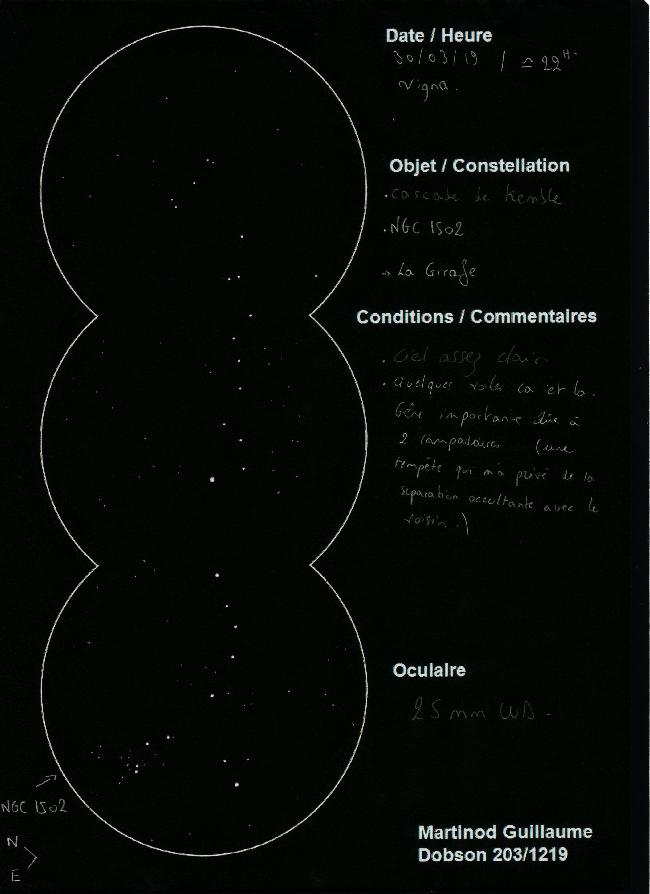 Date / Heure
30/03/19 / ≃ 22H-
Vigna.
Objet / Constellation
. cascade de Kemble
. NGC 1502
→ La Girafe
Conditions / Commentaires
. Ciel assez clair
. Quelques voiles ca et la.
Gêne importante dûe à
2 lampadaires (une
tempête qui m'a privé de la
separation occultante avec le
voisin.)
Oculaire
25 mm WA.
NGC 1502
N
E
Martinod Guillaume
Dobson 203/1219